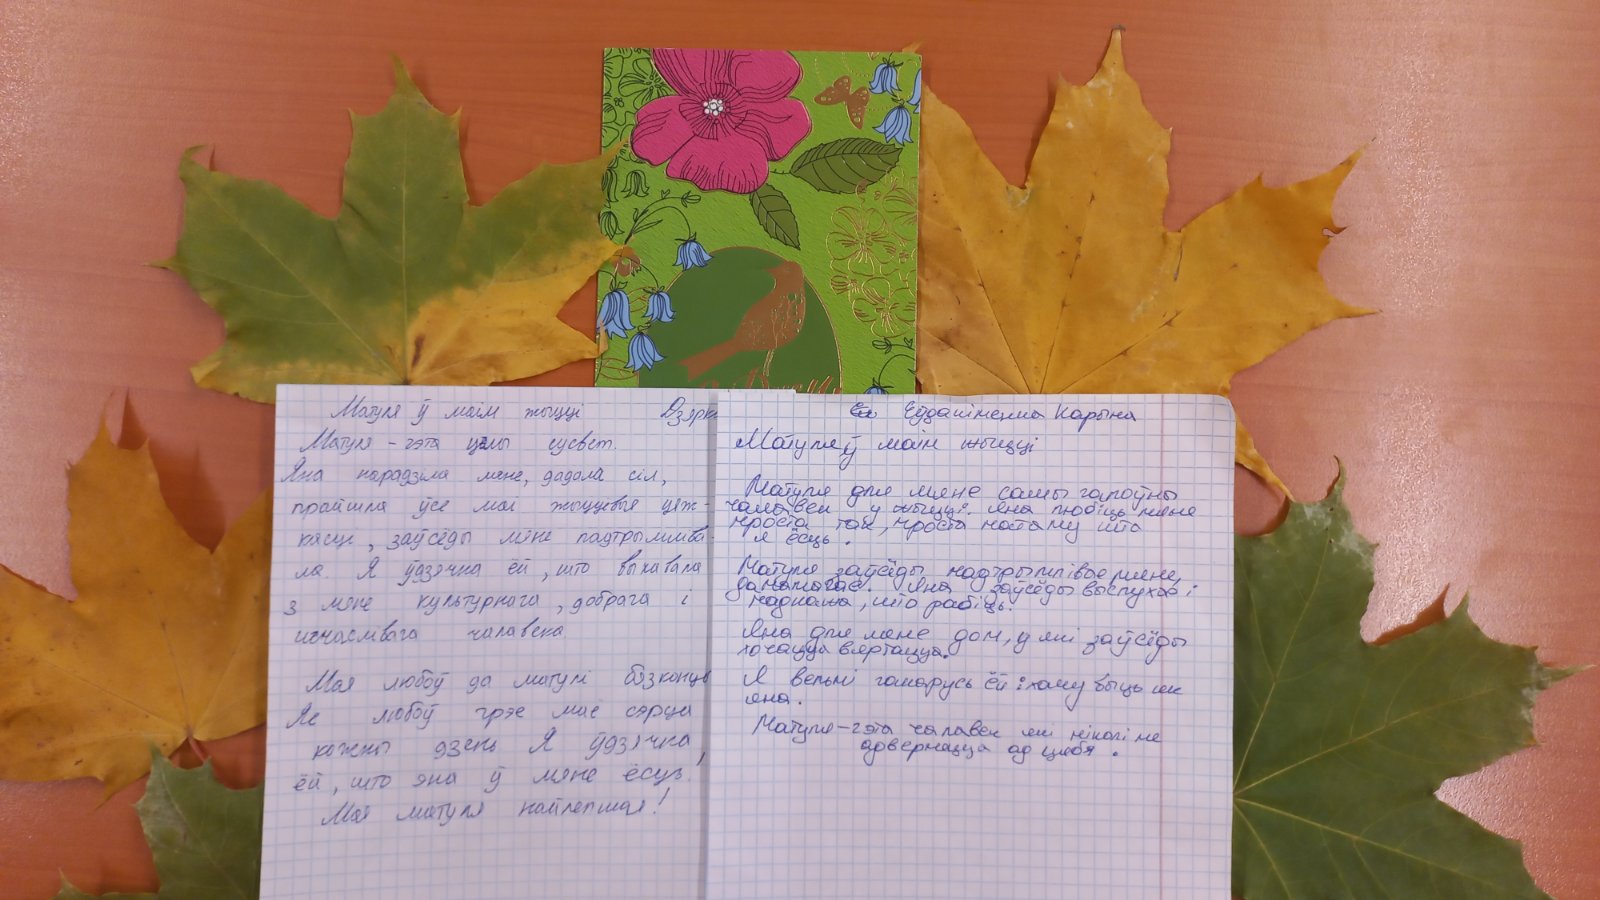 Матуля ў маім жыцці Дзірк
Матуля - гэта цэлы сусвет.
Яна нарадзіла мяне, дадала сіл,
прайшла ўсе мае жыццёвыя цяж-
касці, заўсёды мяне падтрымліва-
ла. Я ўдзячна ёй, што выхавала
з мяне культурнага, добрага і
шчаслівага чалавека
Мая любоў да матулі бязконца
Яе любоў грэе маё сэрца
кожны дзень Я ўдзячна
ёй, што яна ў мяне ёсць!
Мая матуля найлепшая!
Еўдакіменка Карына
Матуля ў маім жыцці
Матуля для мяне самы галоўны
чалавек у жыцці. Яна любіць мяне
проста так, проста патаму што
я ёсць.
Матуля заўсёды падтрымлівае мяне,
дапамагае. Яна заўсёды выслухае і
падкажа, што рабіць.
Яна для мяне дом, у які заўсёды
хочацца вяртацца.
Я вельмі ганарусь ёй і хачу быць як
яна.
Матуля - гэта чалавек які ніколі не
адвернацца ад цябя.